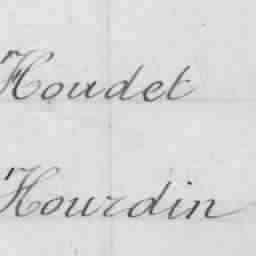 Houdet
Hourdin